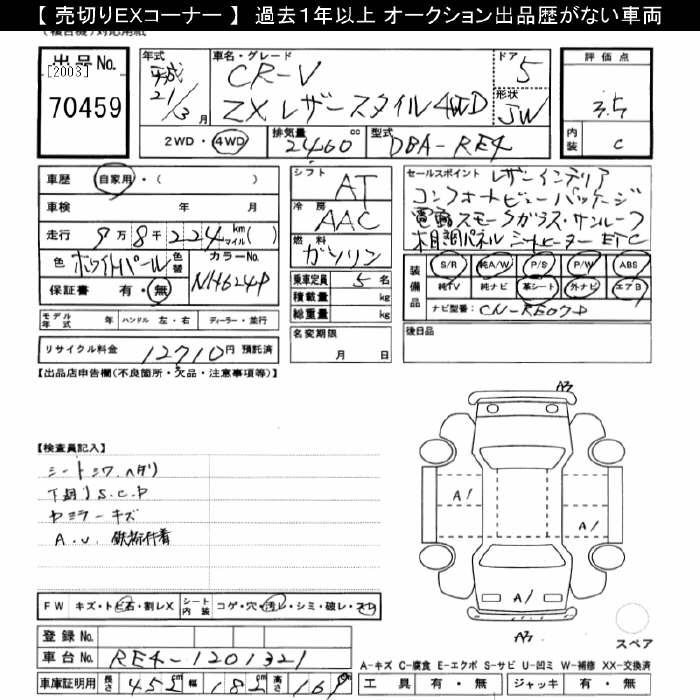 【 売切りＥＸコーナー 】 過去１年以上 オークション出品歴がない車両
出品No. [2003] 70459
年式 平成 21/3月
車名・グレード CR-V
ZX レザースタイル 4WD
ドア 5
形状 JW
評価点 3.5
内装 C
2WD・4WD 排気量 2400 cc 型式 DBA-RE4
車歴 自家用・( )
車検 年 月
走行 9万8千224 km マイル( )
色 ホワイトパール 色替 カラーNo. NH624P
保証書 有・無
モデル年式 年 ハンドル 左・右 ディーラー・並行
リサイクル料金 12710円 預託済
シフト AT
冷房 AAC
燃料 ガソリン
乗車定員 5名
積載量 kg
総重量 kg
名変期限 月 日
セールスポイント レザーインテリア
コンフォートビューパッケージ
電動スモークガラス・サンルーフ
木目調パネル シートヒーター ETC
装備品 S/R 純A/W P/S P/W ABS
純TV 純ナビ 革シート 外ナビ エアB
ナビ型番 CN-RE07D
後日品
【出品店申告欄(不良箇所・欠品・注意事項等)】
【検査員記入】
シートシワ、ヘタリ
下廻り S.C.P
ヤミラーキズ
A.U. 鉄粉付着
A3
A1
A1
A1
A3
スペア
FW キズ・トビ石・割レX シート内装 コゲ・穴・汚レ・シミ・破レ・スレ
登録No.
車台No. RE4-1201321
車庫証明用 長さ 452 幅 182 高さ 169
A-キズ C-腐食 E-エクボ S-サビ U-凹ミ W-補修 XX-交換済
工具 有・無 ジャッキ 有・無